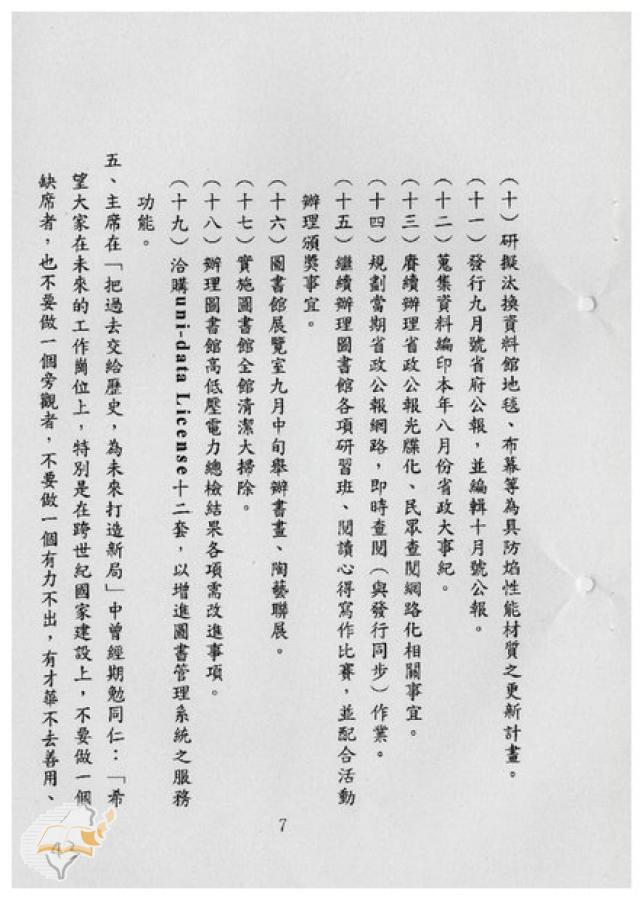 (十)研擬汰換資料館地毯、布幕等為具防焰性能材質之更新計畫。
(十一)發行九月號省府公報，並編輯十月號公報。
(十二)蒐集資料編印本年八月份省政大事紀。
(十三)賡續辦理省政公報光牒化、民眾查閱網路化相關事宜。
(十四)規劃當期省政公報網路，即時查閱(與發行同步)作業。
(十五)繼續辦理圖書館各項研習班、閱讀心得寫作比賽，並配合活動
辦理頒獎事宜。
(十六)圖書館展覽室九月中旬舉辦書畫、陶藝聯展。
(十七)實施圖書館全館清潔大掃除。
(十八)辦理圖書館高低壓電力總檢結果各項需改進事項。
(十九)洽購uni-data License十二套，以增進圖書管理系統之服務
功能。
五、主席在「把過去交給歷史，為未來打造新局」中曾經期勉同仁：「希
望大家在未來的工作崗位上，特別是在跨世紀國家建設上，不要做一個
缺席者，也不要做一個旁觀者，不要做一個有力不出，有才華不去善用、
7
42